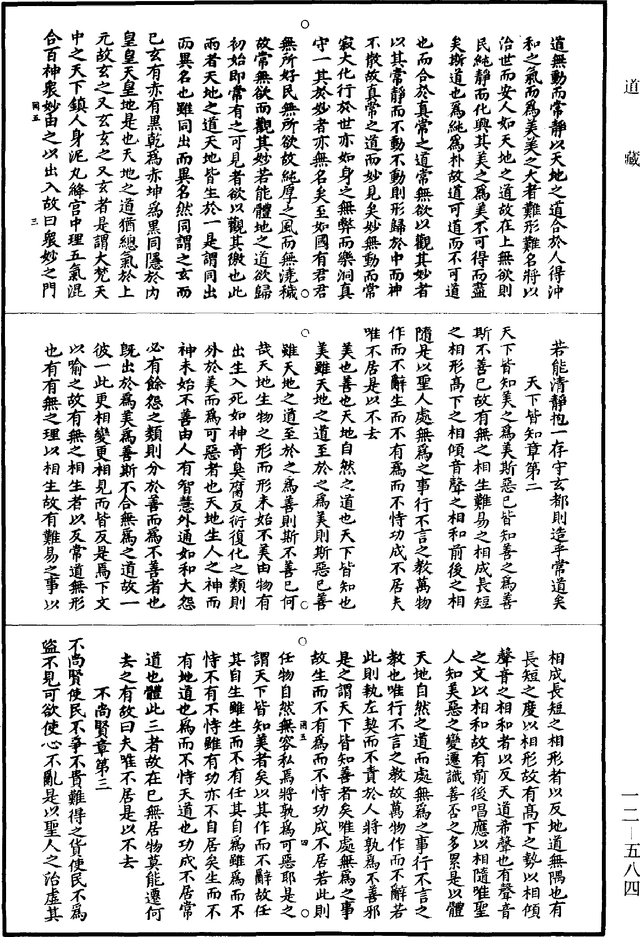 道藏
道無動而常靜以天地之道合於人得沖
和之氣而爲美美之大者難形難名將以
治世而安人如天地之道故在上無欲則
民純靜而化興其美之爲美不可得而蓋
矣斯道也爲純爲朴故道可道而不可道
也而合於真常之道常無欲以觀其妙者
以其常靜而不動不動則形歸於中而神
不散故真常之道而妙見矣妙無動而常
寂大化行於世亦如身之無弊而樂洞真
守一其於妙者亦無名矣至如國有君君
無所好民無所欲故純厚之風而無澆穢
故常無欲而觀其妙若能體地之道欲歸
初始即常有之可見者欲以觀其徼也此
兩者天地之道天地皆生於一是謂同出
而異名也雖同出而異名然同謂之玄而
已玄有亦有黑乾爲赤坤爲黑同隱於內
皇皇天皇地是也天地之道猶總氣於上
元故玄之又玄玄之又玄者是謂大梵天
中之天下鎮人身泥丸絳宮中理五氣混
合百神衆妙由之以出入故曰衆妙之門
若能清靜抱一存守玄都則造乎常道矣
天下皆知章第二
天下皆知美之爲美斯惡已皆知善之爲善
斯不善已故有無之相生難易之相成長短
之相形高下之相傾音聲之相和前後之相
隨是以聖人處無爲之事行不言之教萬物
作而不辭生而不有爲而不恃功成不居夫
唯不居是以不去
美也善也天地自然之道也天下皆知也
美雖天地之道至於之爲美則斯惡已善
雖天地之道至於之爲善則斯不善已何
哉天地生物之形而形未始不美由物有
出生入死如神奇臭腐反衍復化之類則
外於美而爲可惡者也天地生人之神而
神未始不善由人有智慧外通如和大怨
必有餘怨之類則分於善而爲不善者也
既出於爲美爲善斯不合無爲之道故一
彼一此更相變更相見而皆反是爲下文
以喻之故有無之相生者以反常道無形
也有有無之理以相生故有難易之事以
相成長短之相形者以反地道無隅也有
長短之度以相形故有高下之勢以相傾
聲音之相和者以反天道希聲也有聲音
之文以相和故有前後唱應以相隨唯聖
人知美惡之變還識善否之多累是以體
天地自然之道而處無爲之事行不言之
教也唯行不言之教故萬物作而不辭若
此則執左契而不責於人將孰爲不善邪
是之謂天下皆知善者矣唯處無爲之事
故生而不有爲而不恃功成不居若此則
任物自然無容私焉將孰爲可惡耶是之
謂天下皆知美者矣以其作而不辭故任
其自生雖生而不有任其自爲雖爲而不
恃不有不恃雖有功亦不自居矣生而不
有地道也爲而不恃天道也功成不居常
道也體此三者故在已無居物莫能遷何
去之有故曰夫唯不居是以不去
不尚賢章第三
不尚賢使民不爭不貴難得之貨使民不爲
盜不見可欲使心不亂是以聖人之治虛其
一二—五八四